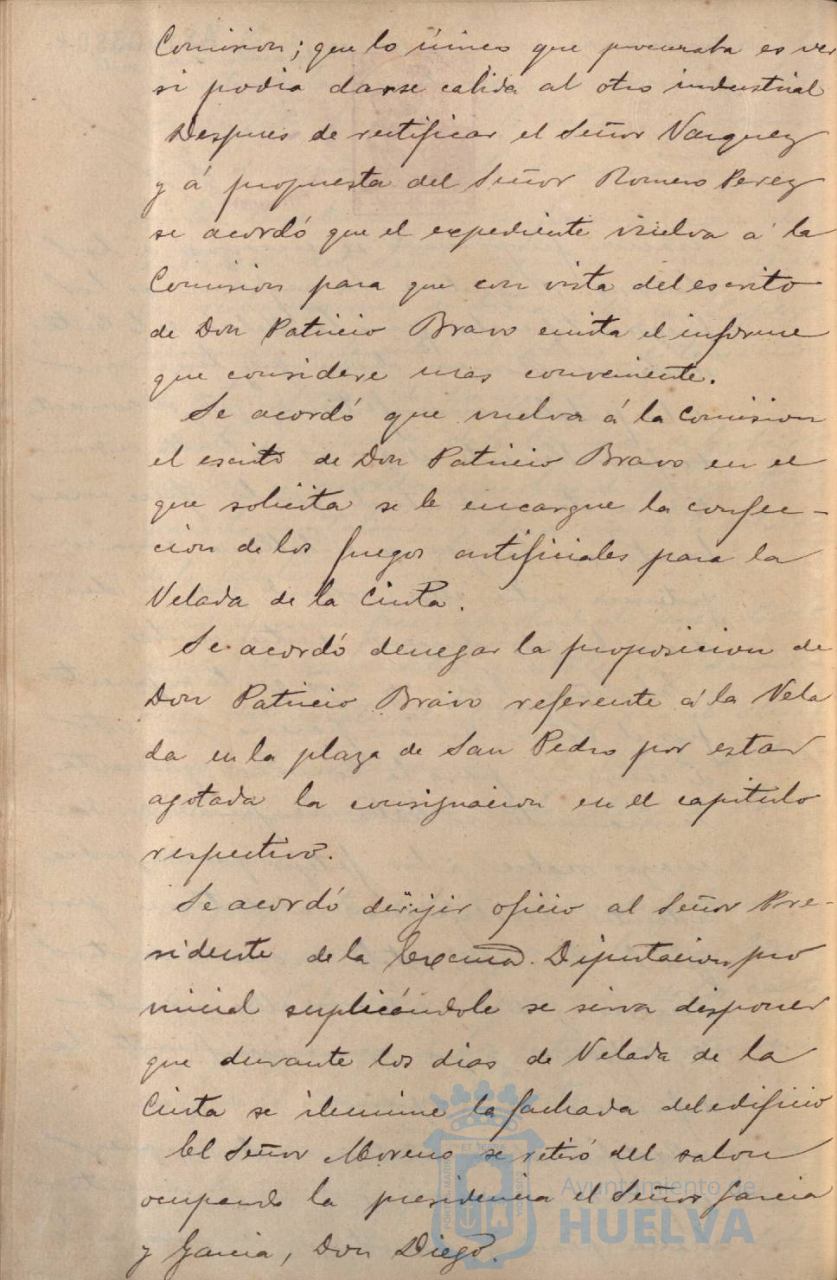 Comision; que lo único que procuraba es ver
si podia darse calida al otro industrial
Despues de rectificar el Señor Vazquez
y á propuesta del Señor Romero Perez
se acordó que el expediente vuelva á la
Comision para que con vista del escrito
de Don Patricio Bravo emita el informe
que considere mas conveniente.
Se acordó que vuelva á la Comision
el escrito de Don Patricio Bravo en el
que solicita se le encargue la confec-
cion de los fuegos artificiales para la
Velada de la Cinta.
Se acordó denegar la proposicion de
Don Patricio Bravo referente á la Vela
da en la plaza de San Pedro por estar
agotada la consignacion en el capitulo
respectivo.
Se acordó dirijir oficio al Señor Pre-
sidente de la Excma. Diputacion pro
vincial suplicándole se sirva disponer
que durante los dias de Velada de la
Cinta se ilumine la fachada del edificio
El Señor Moreno se retiró del salon
ocupando la presidencia el Señor Garcia
y Garcia, Don Diego.
Ayuntamiento de
HUELVA